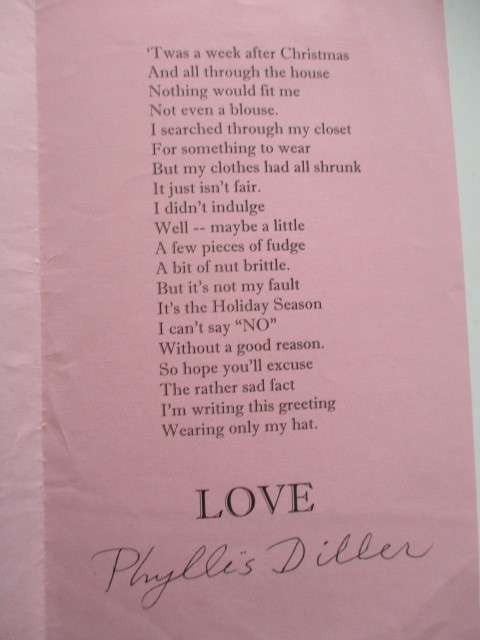 'Twas a week after Christmas
And all through the house
Nothing would fit me
Not even a blouse.
I searched through my closet
For something to wear
But my clothes had all shrunk
It just isn't fair.
I didn't indulge
Well -- maybe a little
A few pieces of fudge
A bit of nut brittle.
But it's not my fault
It's the Holiday Season
I can't say “NO”
Without a good reason.
So hope you'll excuse
The rather sad fact
I'm writing this greeting
Wearing only my hat.
LOVE
Phyllis Diller